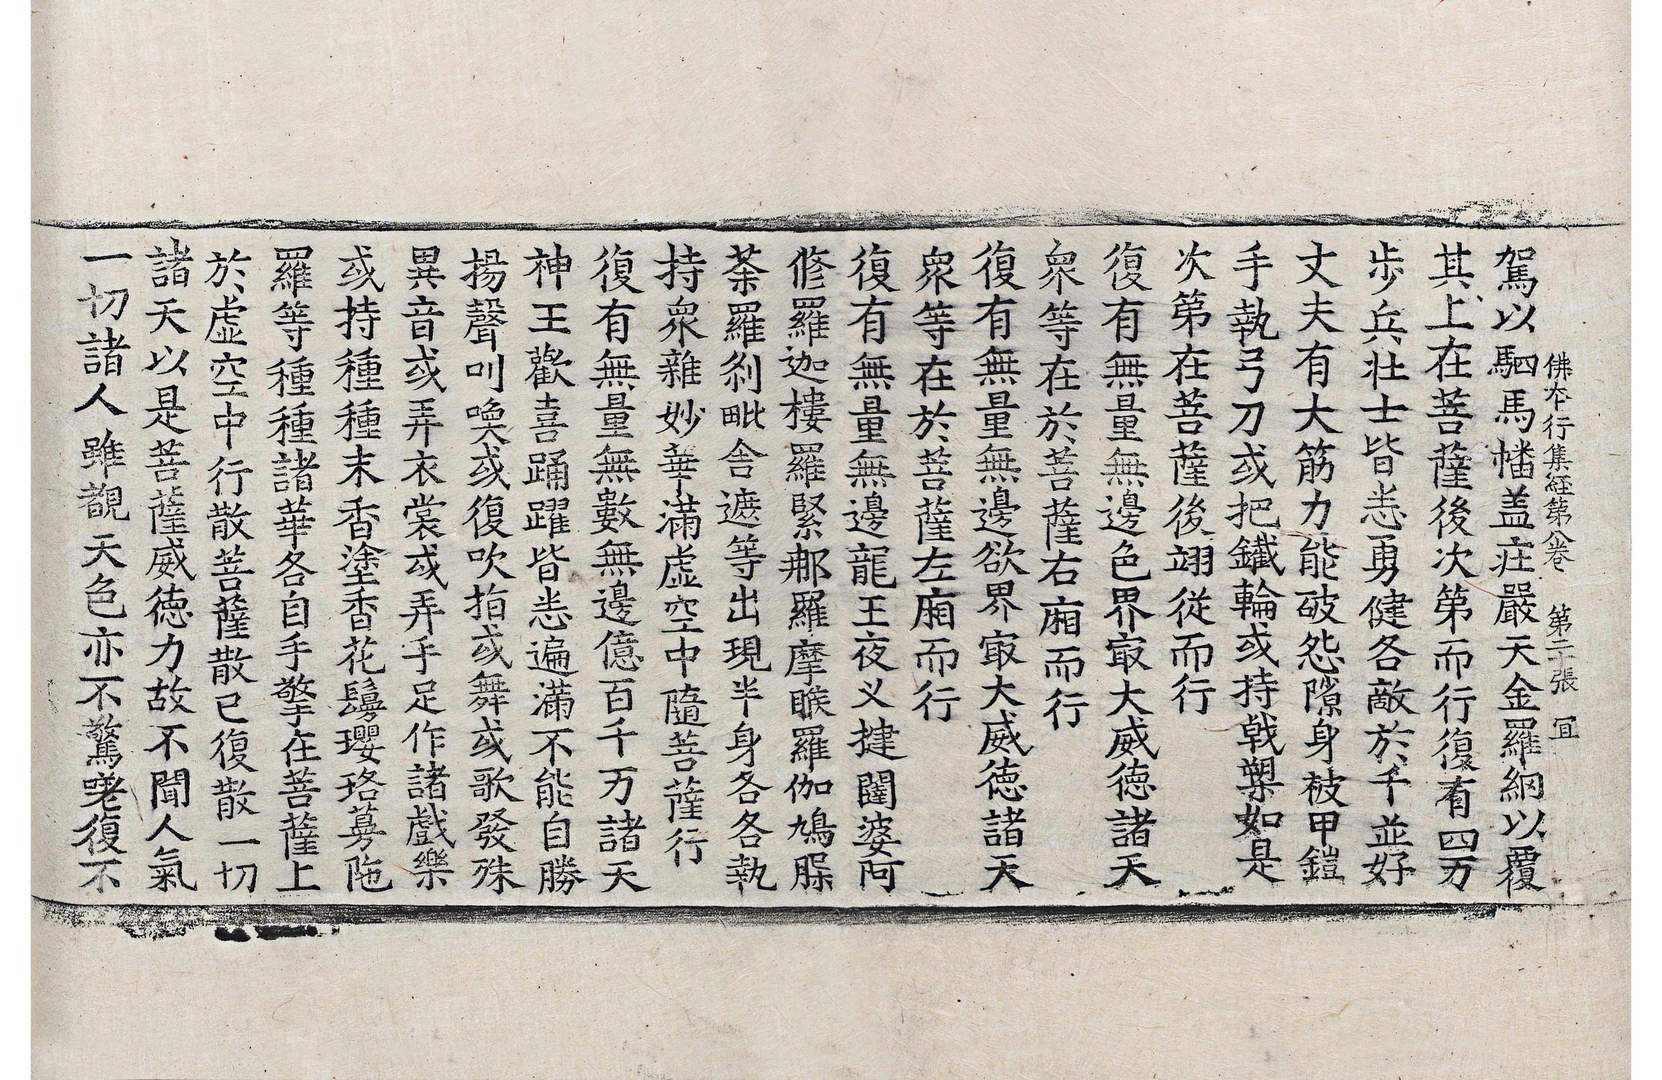 佛本行集經第八卷　第二十張　宜
駕以駟馬幡盖莊嚴天金羅網以覆
其上在菩薩後次第而行復有四万
步兵壮士皆悉勇健各敵於千並好
丈夫有大筋力能破怨隙身被甲鎧
手執弓刀或把鐵輪或持戟槊如是
次第在菩薩後翊從而行
復有無量無邊色界㝡大威德諸天
衆等在於菩薩右廂而行
復有無量無邊欲界㝡大威德諸天
衆等在於菩薩左廂而行
復有無量無邊龍王夜叉揵闥婆阿
修羅迦樓羅緊那羅摩睺羅伽鳩脲
荼羅剎毗舍遮等出現半身各各執
持衆雜妙華滿虛空中隨菩薩行
復有無量無數無邊億百千万諸天
神王歡喜踊躍皆悉遍滿不能自勝
揚聲叫喚或復吹指或舞或歌發殊
異音或弄衣裳或弄手足作諸戲樂
或持種種末香塗香花鬘瓔珞蒡陁
羅等種種諸華各自手擎在菩薩上
於虛空中行散菩薩散已復散一切
諸天以是菩薩威德力故不聞人氣
一切諸人雖覩天色亦不驚嗟復不